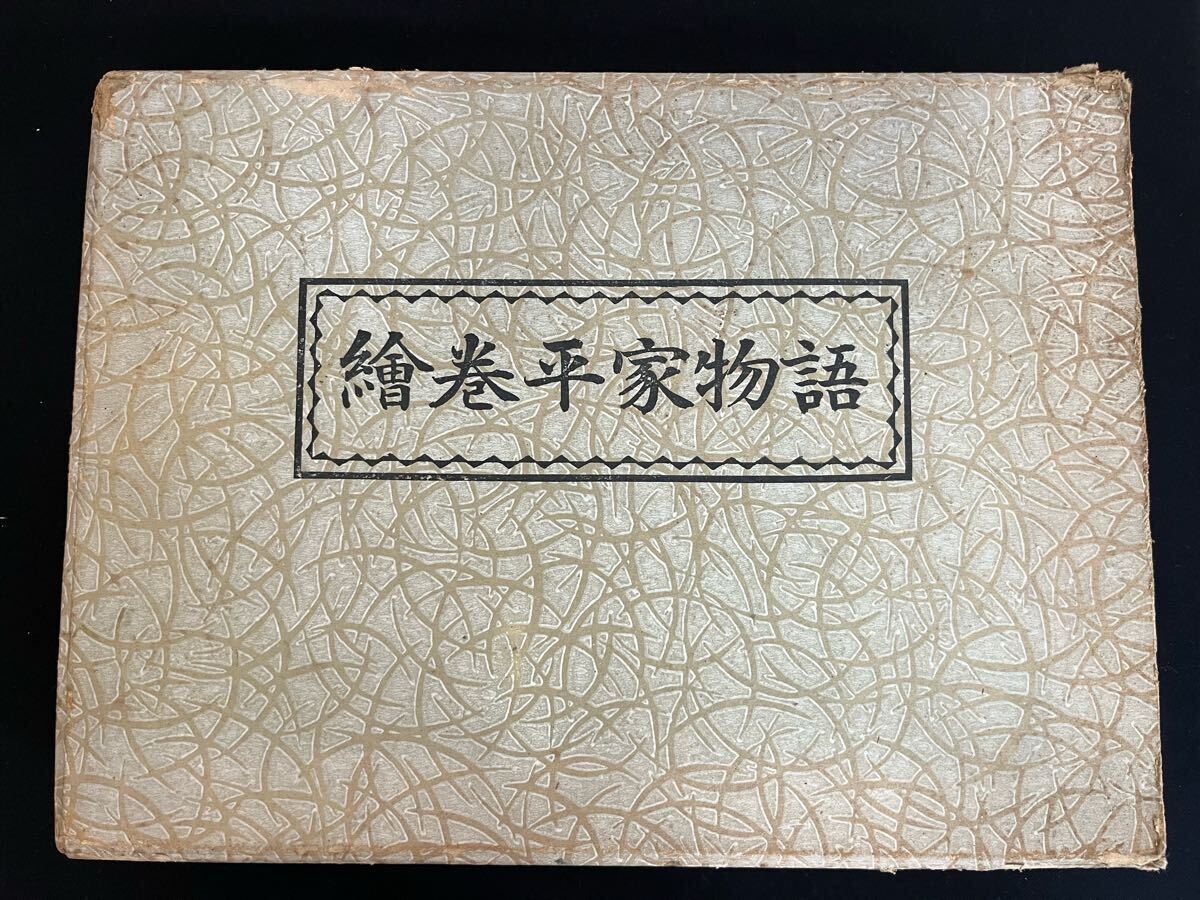 繪卷平家物語